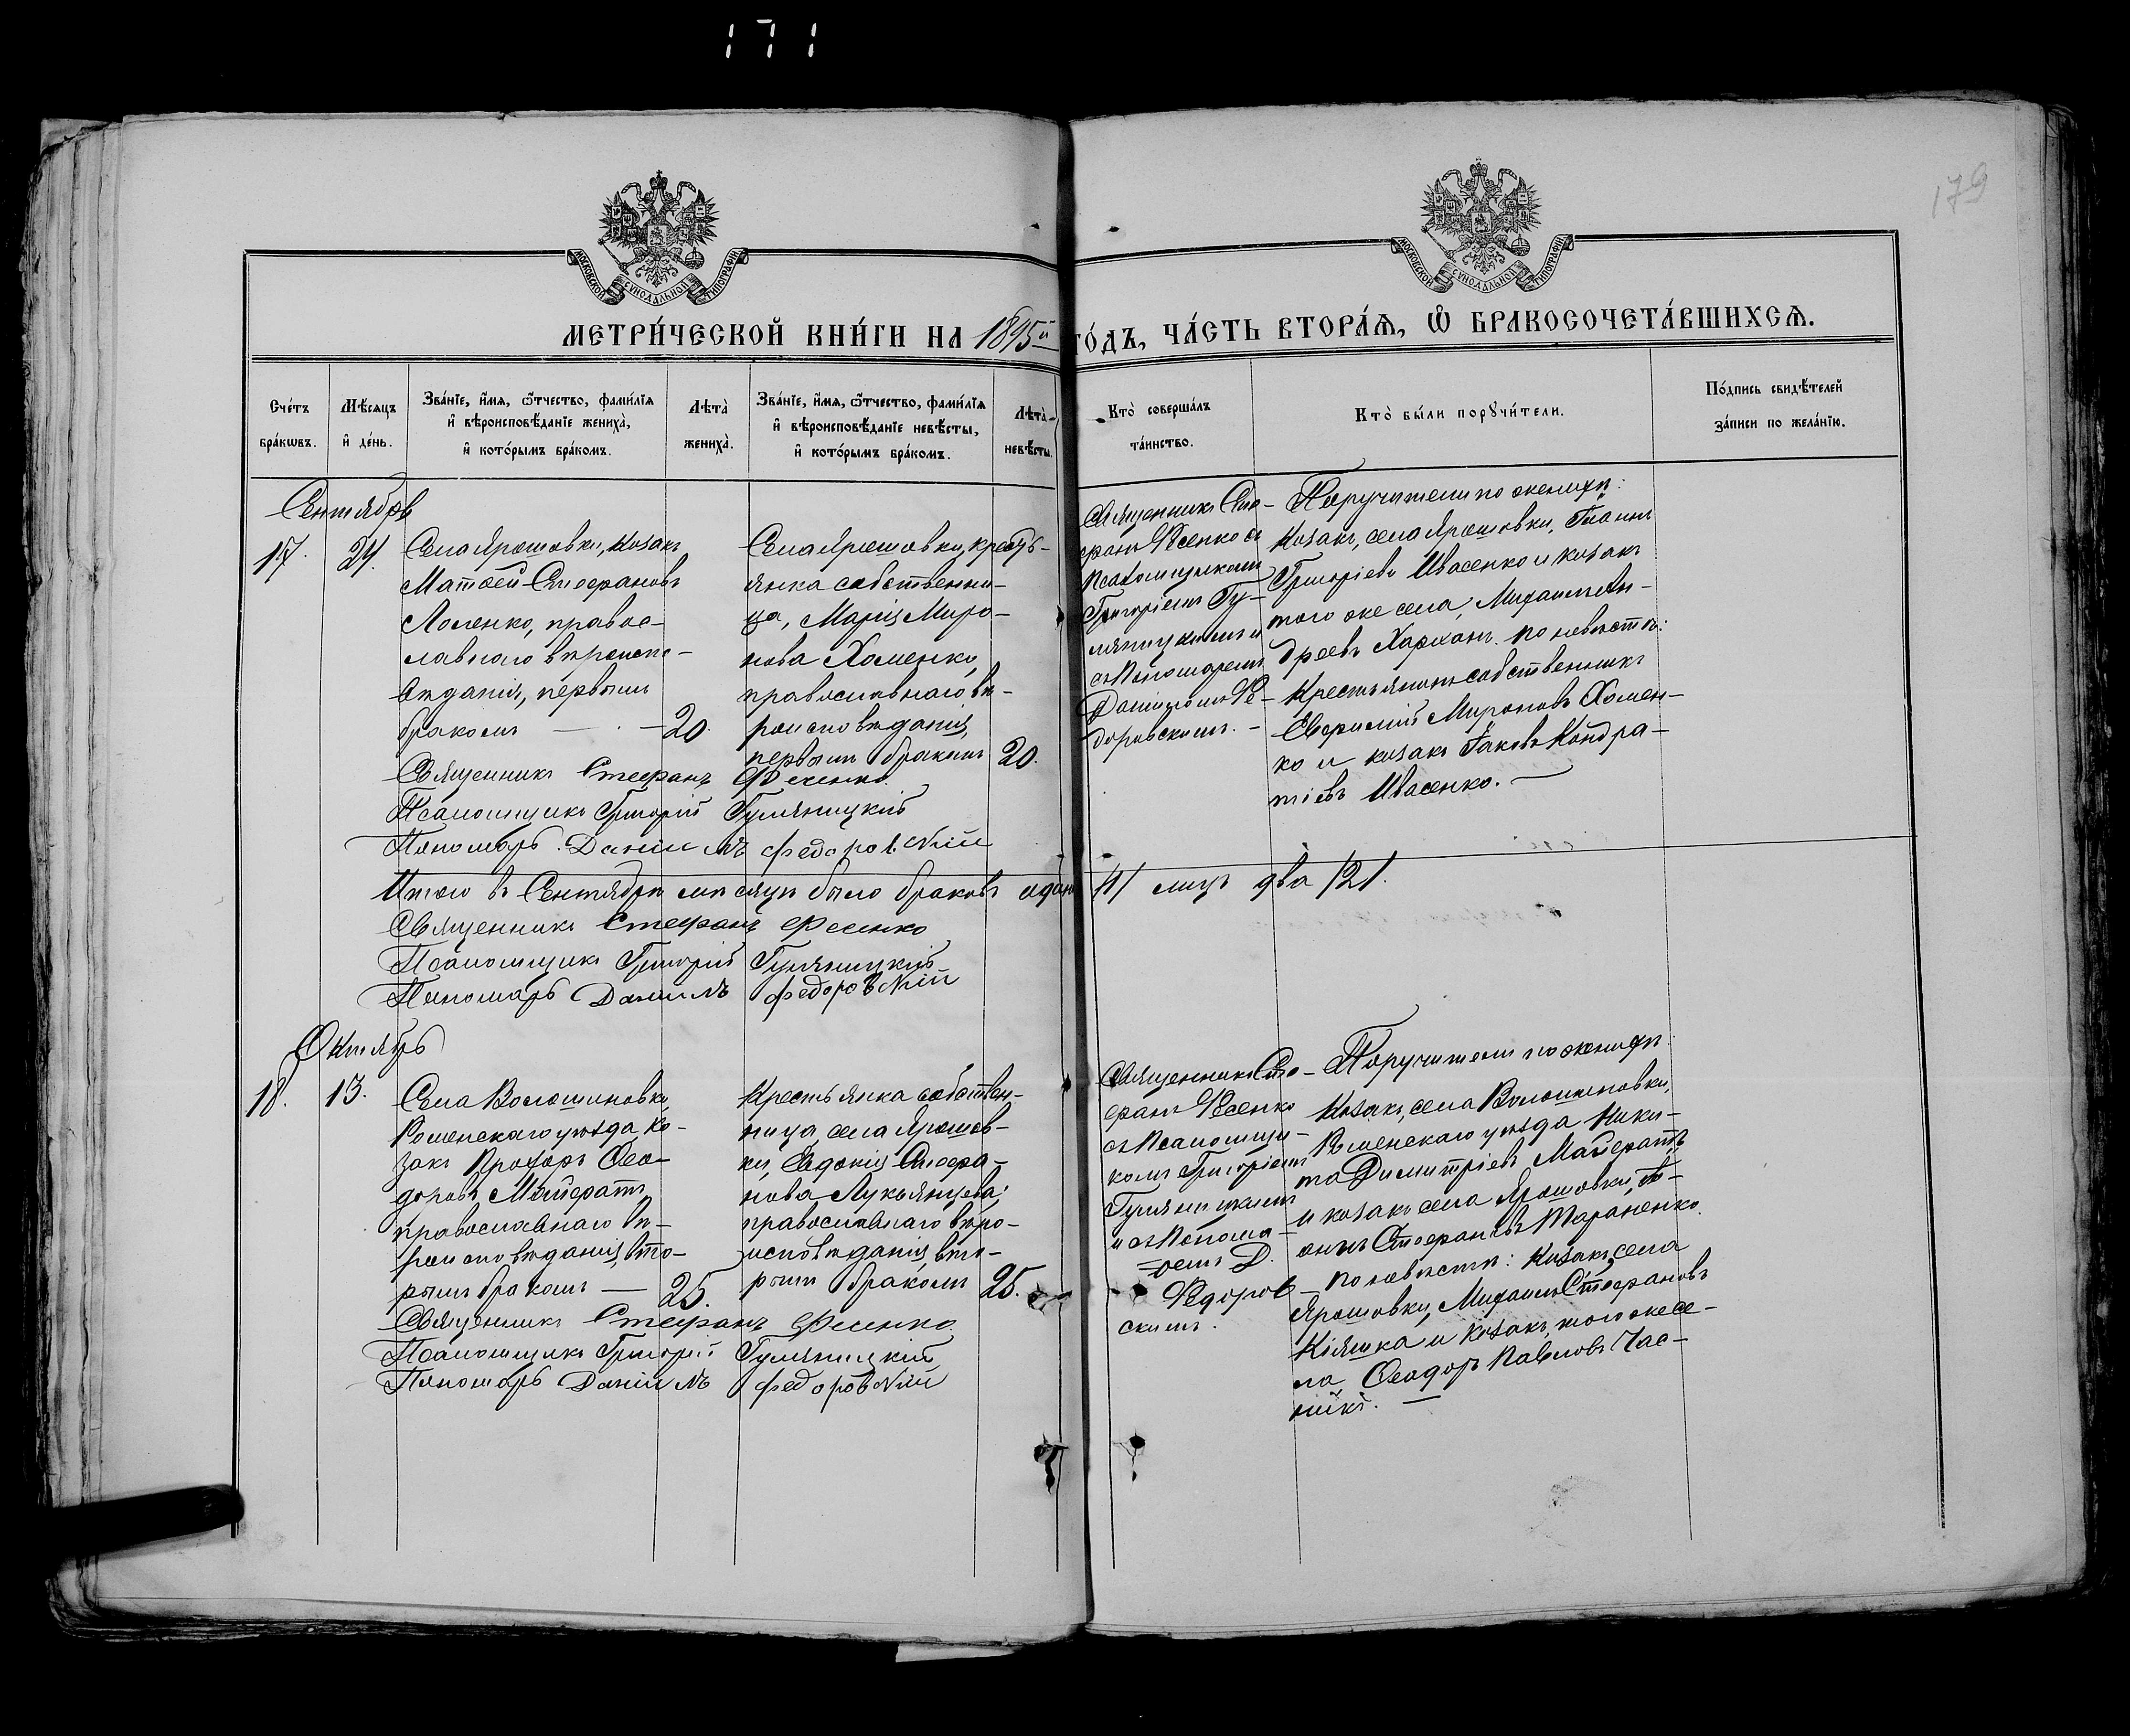 171
179
МОСКОВСКОЙ СѴНОДАЛЬНОЙ ТИПОГРАФІИ
МОСКОВСКОЙ СѴНОДАЛЬНОЙ ТИПОГРАФІИ
МЕТРИ́ЧЕСКОЙ КНИ́ГИ НА 1895й ГО́ДЪ, ЧА́СТЬ ВТОРА́Я, Ѡ҆ БРАКОСОЧЕТА́ВШИХСЯ.
Сче́тъ бра́кѡвъ.
Мѣ́сяцъ и҆ де́нь.
Зва́нїе, и҆́мя, ѻ҆́тчество, фами́лїя
и҆ вѣроисповѣ́данїе жениха̀,
и҆ кото́рымъ бра́комъ.
Лѣта̀ жениха̀.
Зва́нїе, и҆́мя, ѻ҆́тчество, фами́лїя
и҆ вѣроисповѣ́данїе невѣ́сты,
и҆ кото́рымъ бра́комъ.
Лѣта̀ невѣ́сты.
Кто̀ соверша́лъ та́инство.
Кто̀ бы́ли порꙋчи́тели.
По́дпись свидѣ́телей за́писи по жела́нїю.
Сентябрь
17.
24.
Села Ярошовки, козакъ
Матѳей Стефановъ
Лоленко, правос-
лавнаго вѣроиспо-
вѣданія, первымъ
бракомъ — 20.
Села Ярошовки, кресть-
янка собственни-
ца, Марія Миро-
нова Хоменко,
православнаго вѣ-
роисповѣданія,
первымъ бракомъ 20.
Священникъ Сте-
фанъ Фесенко съ
Псаломщикомъ
Григоріемъ Гу-
ляницкимъ и
съ Пономаремъ
Даніиломъ Фе-
доровскимъ. -
Поручители по женихѣ:
Козакъ, села Ярошовки, Іоаннъ
Григоріевъ Ивасенко и козакъ
того же села, Михаилъ Ан-
дреевъ Харханъ. по невѣстѣ:
Крестьянинъ собственникъ
Евфимій Мироновъ Хомен-
ко и козакъ Іаковъ Кондра-
тіевъ Ивасенко. —
Священникъ Стефанъ Фесенко
Псаломщикъ Григорій Гуляницкій
Пономарь Даніилъ Федоровскій
Итого въ Сентябрѣ мѣсяцѣ было браковъ одинъ /1/ лицъ два /2/.
Священникъ Стефанъ Фесенко
Псаломщикъ Григорій Гуляницкій
Пономарь Даніилъ Федоровскій
Октябрь
18.
13.
Села Волошиновки
Роменскаго уѣзда, ко-
закъ Прохоръ Ѳео-
доровъ Майератъ
православнаго вѣ-
роисповѣданія, вто-
рымъ бракомъ — 25.
Крестьянка собствен-
ница села Ярошов-
ки, Евдокія Стефа-
нова Лукьянцева;
православнаго вѣро-
исповѣданія, вто-
рымъ бракомъ 25.
Священникъ Сте-
фанъ Фесенко
съ Псаломщи-
комъ Григоріемъ
Гуляницкимъ
и съ Понома-
ремъ Д.
Федоров-
скимъ.
Поручители по женихѣ:
Козакъ, села Волошиновки,
Роменскаго уѣзда Ники-
та Димитріевъ Майератъ
и козакъ села Ярошовки, Іо-
аннъ Стефановъ Тараненко.
по невѣстѣ: Козакъ, села
Ярошовки, Михаилъ Стефановъ
Кіяшка и козакъ, того же се-
ла Ѳеодоръ Павловъ Час-
никъ. —
Священникъ Стефанъ Фесенко
Псаломщикъ Григорій Гуляницкій
Пономарь Даніилъ Федоровскій